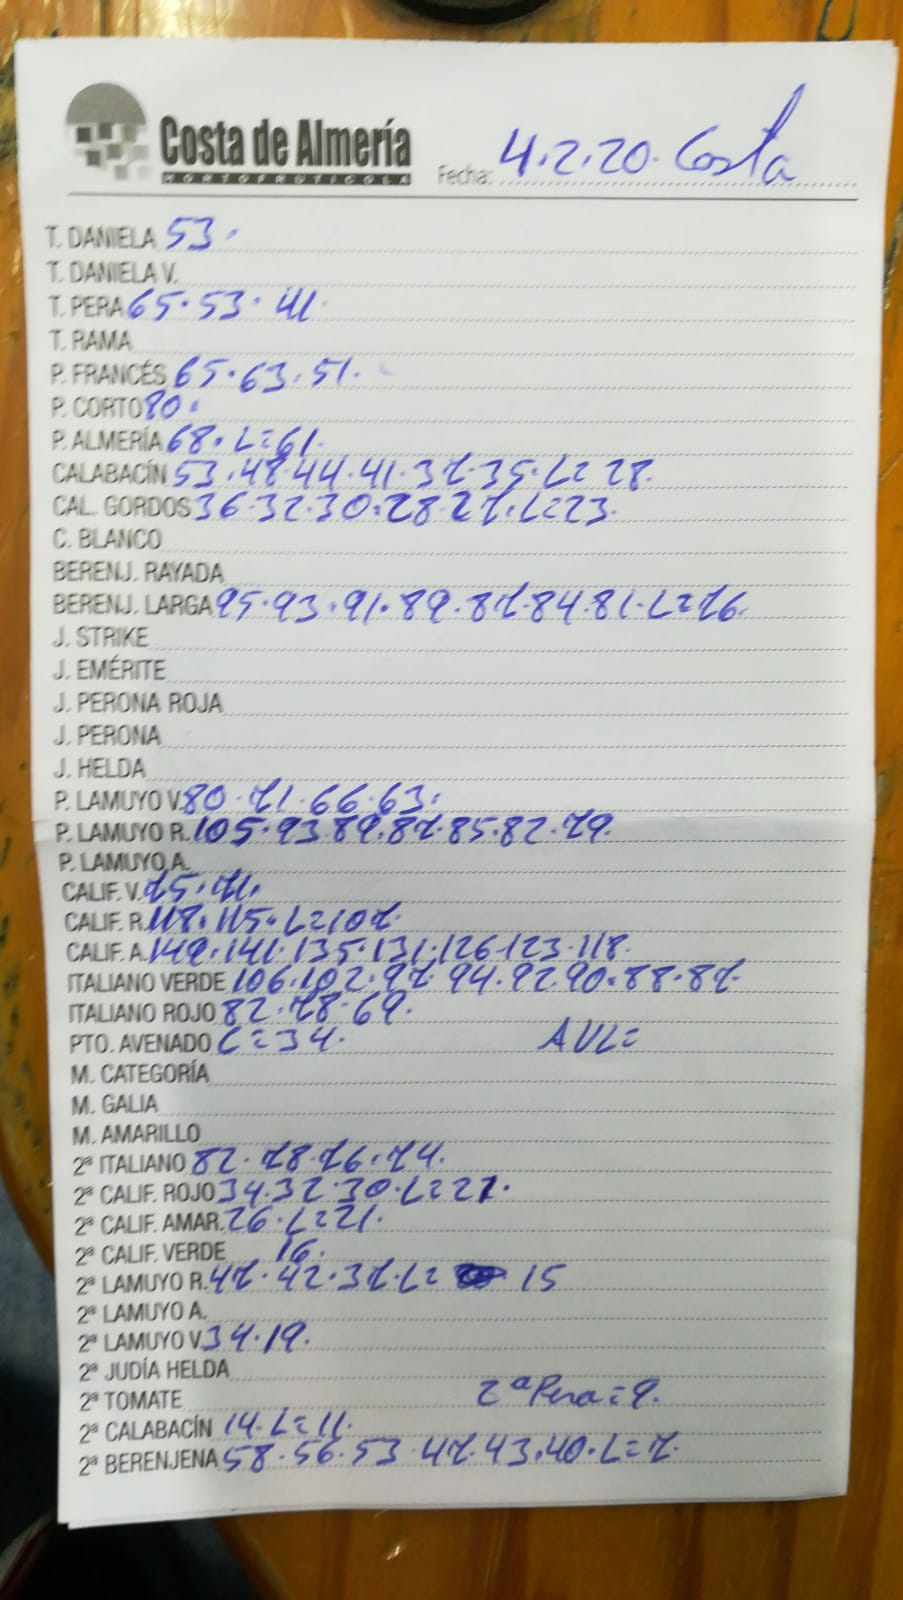 Costa de Almería
HORTOFRUTICOLA
Fecha: 4.2.20. Costa
T. DANIELA 53.
T. DANIELA V.
T. PERA 65.53.41.
T. RAMA
P. FRANCÉS 65.63.51.
P. CORTO 80.
P. ALMERÍA 68. L=61.
CALABACÍN 53.48.44.41.37.35. L=28.
CAL. GORDOS 36.32.30.28.27. L=23.
C. BLANCO
BERENJ. RAYADA
BERENJ. LARGA 95.93.91.89.87.84.81. L=76.
J. STRIKE
J. EMÉRITE
J. PERONA ROJA
J. PERONA
J. HELDA
P. LAMUYO V. 80.71.66.63.
P. LAMUYO R. 105.93.89.87.85.82.79.
P. LAMUYO A.
CALIF. V. 75.71.
CALIF. R. 118.115. L=107.
CALIF. A. 149.141.135.131.126.123.118.
ITALIANO VERDE 106.102.97.94.92.90.88.87.
ITALIANO ROJO 82.78.69.
PTO. AVENADO L=34. AVL=
M. CATEGORÍA
M. GALIA
M. AMARILLO
2ª ITALIANO 82.78.76.74.
2ª CALIF. ROJO 34.32.30. L=27.
2ª CALIF. AMAR. 26. L=21.
2ª CALIF. VERDE 16.
2ª LAMUYO R. 47.42.37. L= 15
2ª LAMUYO A.
2ª LAMUYO V. 34.19.
2ª JUDÍA HELDA
2ª TOMATE 2ª Pera=9.
2ª CALABACÍN 14. L=11.
2ª BERENJENA 58.56.53.47.43.40. L=7.